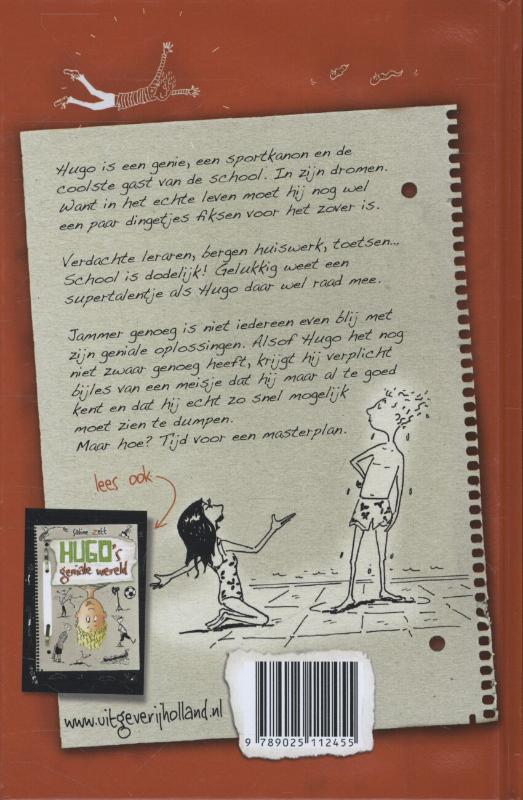 Hugo is een genie, een sportkanon en de
coolste gast van de school. In zijn dromen.
Want in het echte leven moet hij nog wel
een paar dingetjes fiksen voor het zover is.
Verdachte leraren, bergen huiswerk, toetsen...
School is dodelijk! Gelukkig weet een
supertalentje als Hugo daar wel raad mee.
Jammer genoeg is niet iedereen even blij met
zijn geniale oplossingen. Alsof Hugo het nog
niet zwaar genoeg heeft, krijgt hij verplicht
bijles van een meisje dat hij maar al te goed
kent en dat hij echt zo snel mogelijk
moet zien te dumpen.
Maar hoe? Tijd voor een masterplan.
lees ook
Sabine Zett
HUGO's
geniale wereld
www.uitgeverijholland.nl
9 789025 112455